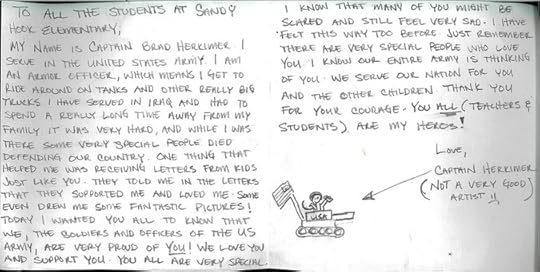 TO ALL THE STUDENTS AT SANDY
HOOK ELEMENTARY,
MY NAME IS CAPTAIN BRAD HERKIMER. I
SERVE IN THE UNITED STATES ARMY. I AM
AN ARMOR OFFICER, WHICH MEANS I GET TO
RIDE AROUND ON TANKS AND OTHER REALLY BIG
TRUCKS. I HAVE SERVED IN IRAQ AND HAD TO
SPEND A REALLY LONG TIME AWAY FROM MY
FAMILY. IT WAS VERY HARD, AND WHILE I WAS
THERE SOME VERY SPECIAL PEOPLE DIED
DEFENDING OUR COUNTRY. ONE THING THAT
HELPED ME WAS RECEIVING LETTERS FROM KIDS
JUST LIKE YOU. THEY TOLD ME IN THE LETTERS
THAT THEY SUPPORTED ME AND LOVED ME. SOME
EVEN DREW ME SOME FANTASTIC PICTURES!
TODAY I WANTED YOU ALL TO KNOW THAT
WE, THE SOLDIERS AND OFFICERS OF THE US
ARMY, ARE VERY PROUD OF YOU! WE LOVE YOU
AND SUPPORT YOU. YOU ALL ARE VERY SPECIAL.
I KNOW THAT MANY OF YOU MIGHT BE
SCARED AND STILL FEEL VERY SAD. I HAVE
FELT THIS WAY TOO BEFORE. JUST REMEMBER
THERE ARE VERY SPECIAL PEOPLE WHO LOVE
YOU. I KNOW OUR ENTIRE ARMY IS THINKING
OF YOU. WE SERVE OUR NATION FOR YOU
AND THE OTHER CHILDREN. THANK YOU
FOR YOUR COURAGE. YOU ALL (TEACHERS &
STUDENTS) ARE MY HEROS!
LOVE,
CAPTAIN HERKIMER
(NOT A VERY GOOD)
ARTIST!!
USA